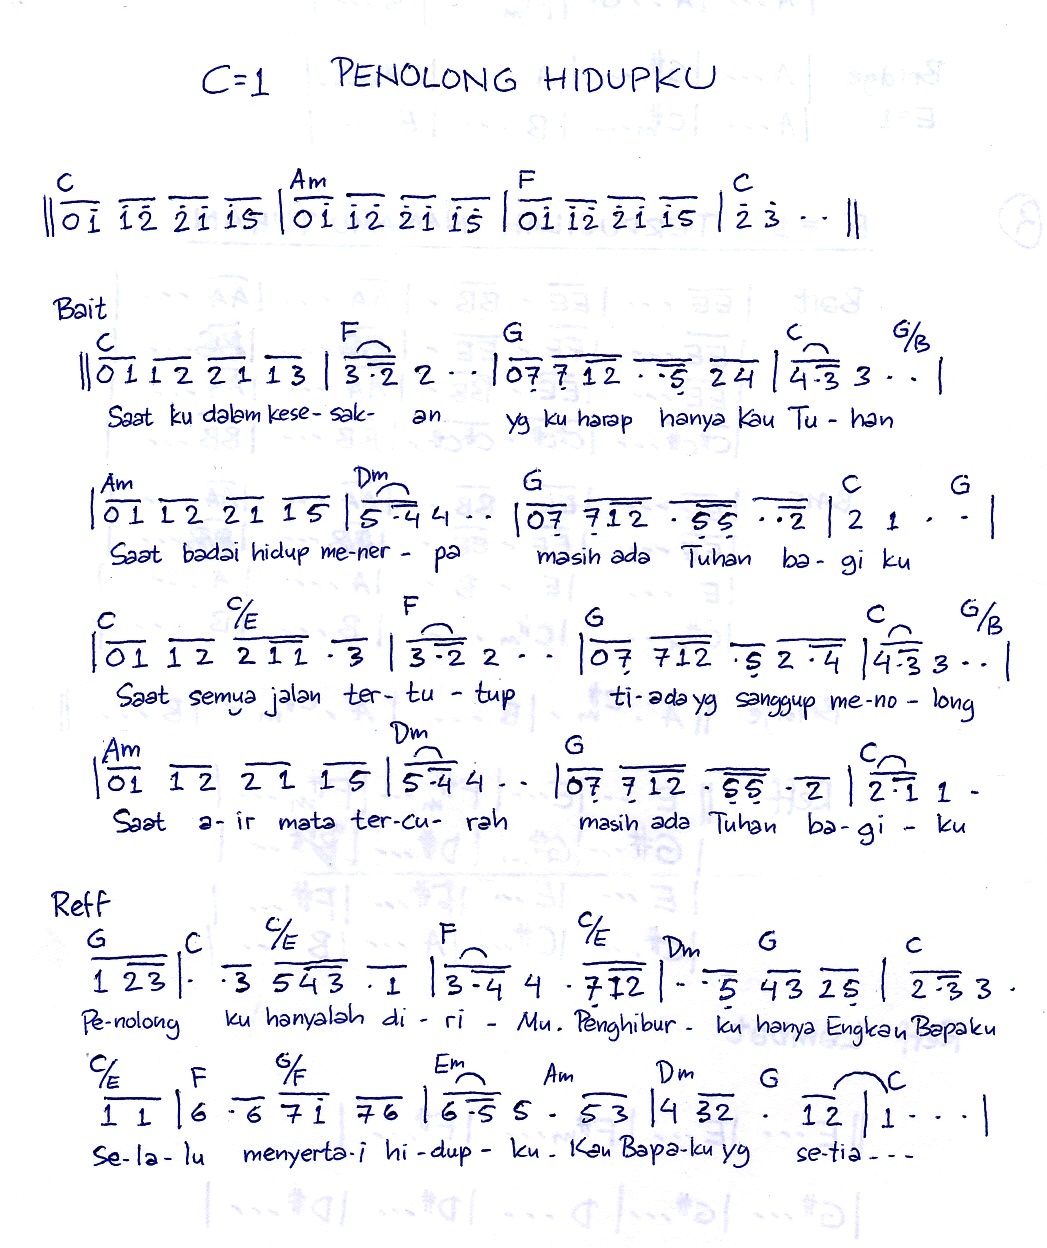 C=1 PENOLONG HIDUPKU
C Am F C
||01̇ 1̇2̇ 2̇1̇ 1̇5 |01̇ 1̇2̇ 2̇1̇ 1̇5 |01̇ 1̇2̇ 2̇1̇ 1̇5 |2̇ 3̇ . . ||
Bait
C F G C G/B
||01 12 21 13 |3.2 2 . . |07̣ 7̣12 . .5̣ 24 |4.3 3 . . |
Saat ku dalam kese-sak- an yg ku harap hanya Kau Tu-han
Am Dm G C G
|01 12 21 15 |5.4 4 . . |07̣ 7̣12 .5̣5̣ ..2 |2 1 . . |
Saat badai hidup me-ner-pa masih ada Tuhan ba-gi ku
C C/E F G C G/B
|01 12 211 .3 |3.2 2 . . |07̣ 7̣12 .5̣ 2.4 |4.3 3 . . |
Saat semua jalan ter-tu-tup ti-ada yg sanggup me-no-long
Am Dm G C
|01 12 21 15 |5.4 4 . . |07̣ 7̣12 .5̣5̣ .2 |2.1 1 .
Saat a-ir mata ter-cu-rah masih ada Tuhan ba-gi-ku
Reff
G C C/E F C/E Dm G C
1 23 |. .3 543 .1 |3.4 4 .7̣12 |. .5̣ 43 25̣ | 2.33 .
Pe-nolong ku hanyalah di-ri-Mu. Penghibur-ku hanya Engkau Bapaku
C/E F G/F Em Am Dm G C
11 |6 .6 71̇ 76 |6.5 5 . 53 |4 32 . 12 |1 . . . |
Se-la-lu menyerta-i hi-dup-ku. Kau Bapa-ku yg se-tia---